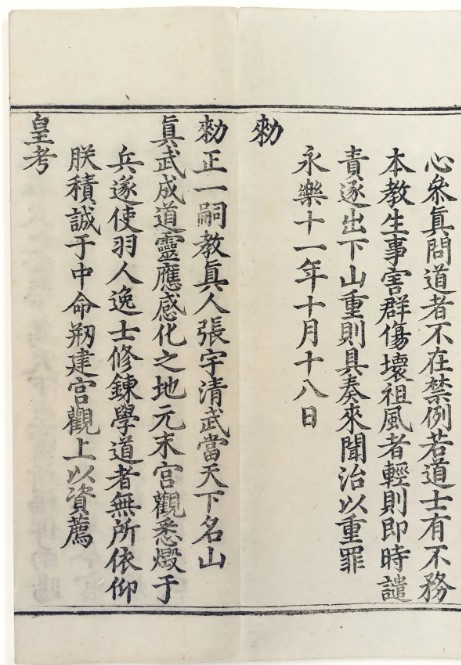 心參真問道者不在禁例若道士有不務
本教生事害群傷壞祖風者輕則即時譴
責逐出下山重則具奏來聞治以重罪
永樂十一年十月十八日
勑
勑正一嗣教真人張宇清武當天下名山
真武成道靈應感化之地元末宮觀悉燬于
兵遂使羽人逸士修鍊學道者無所依仰
朕積誠于中命剏建宮觀上以資薦
皇考